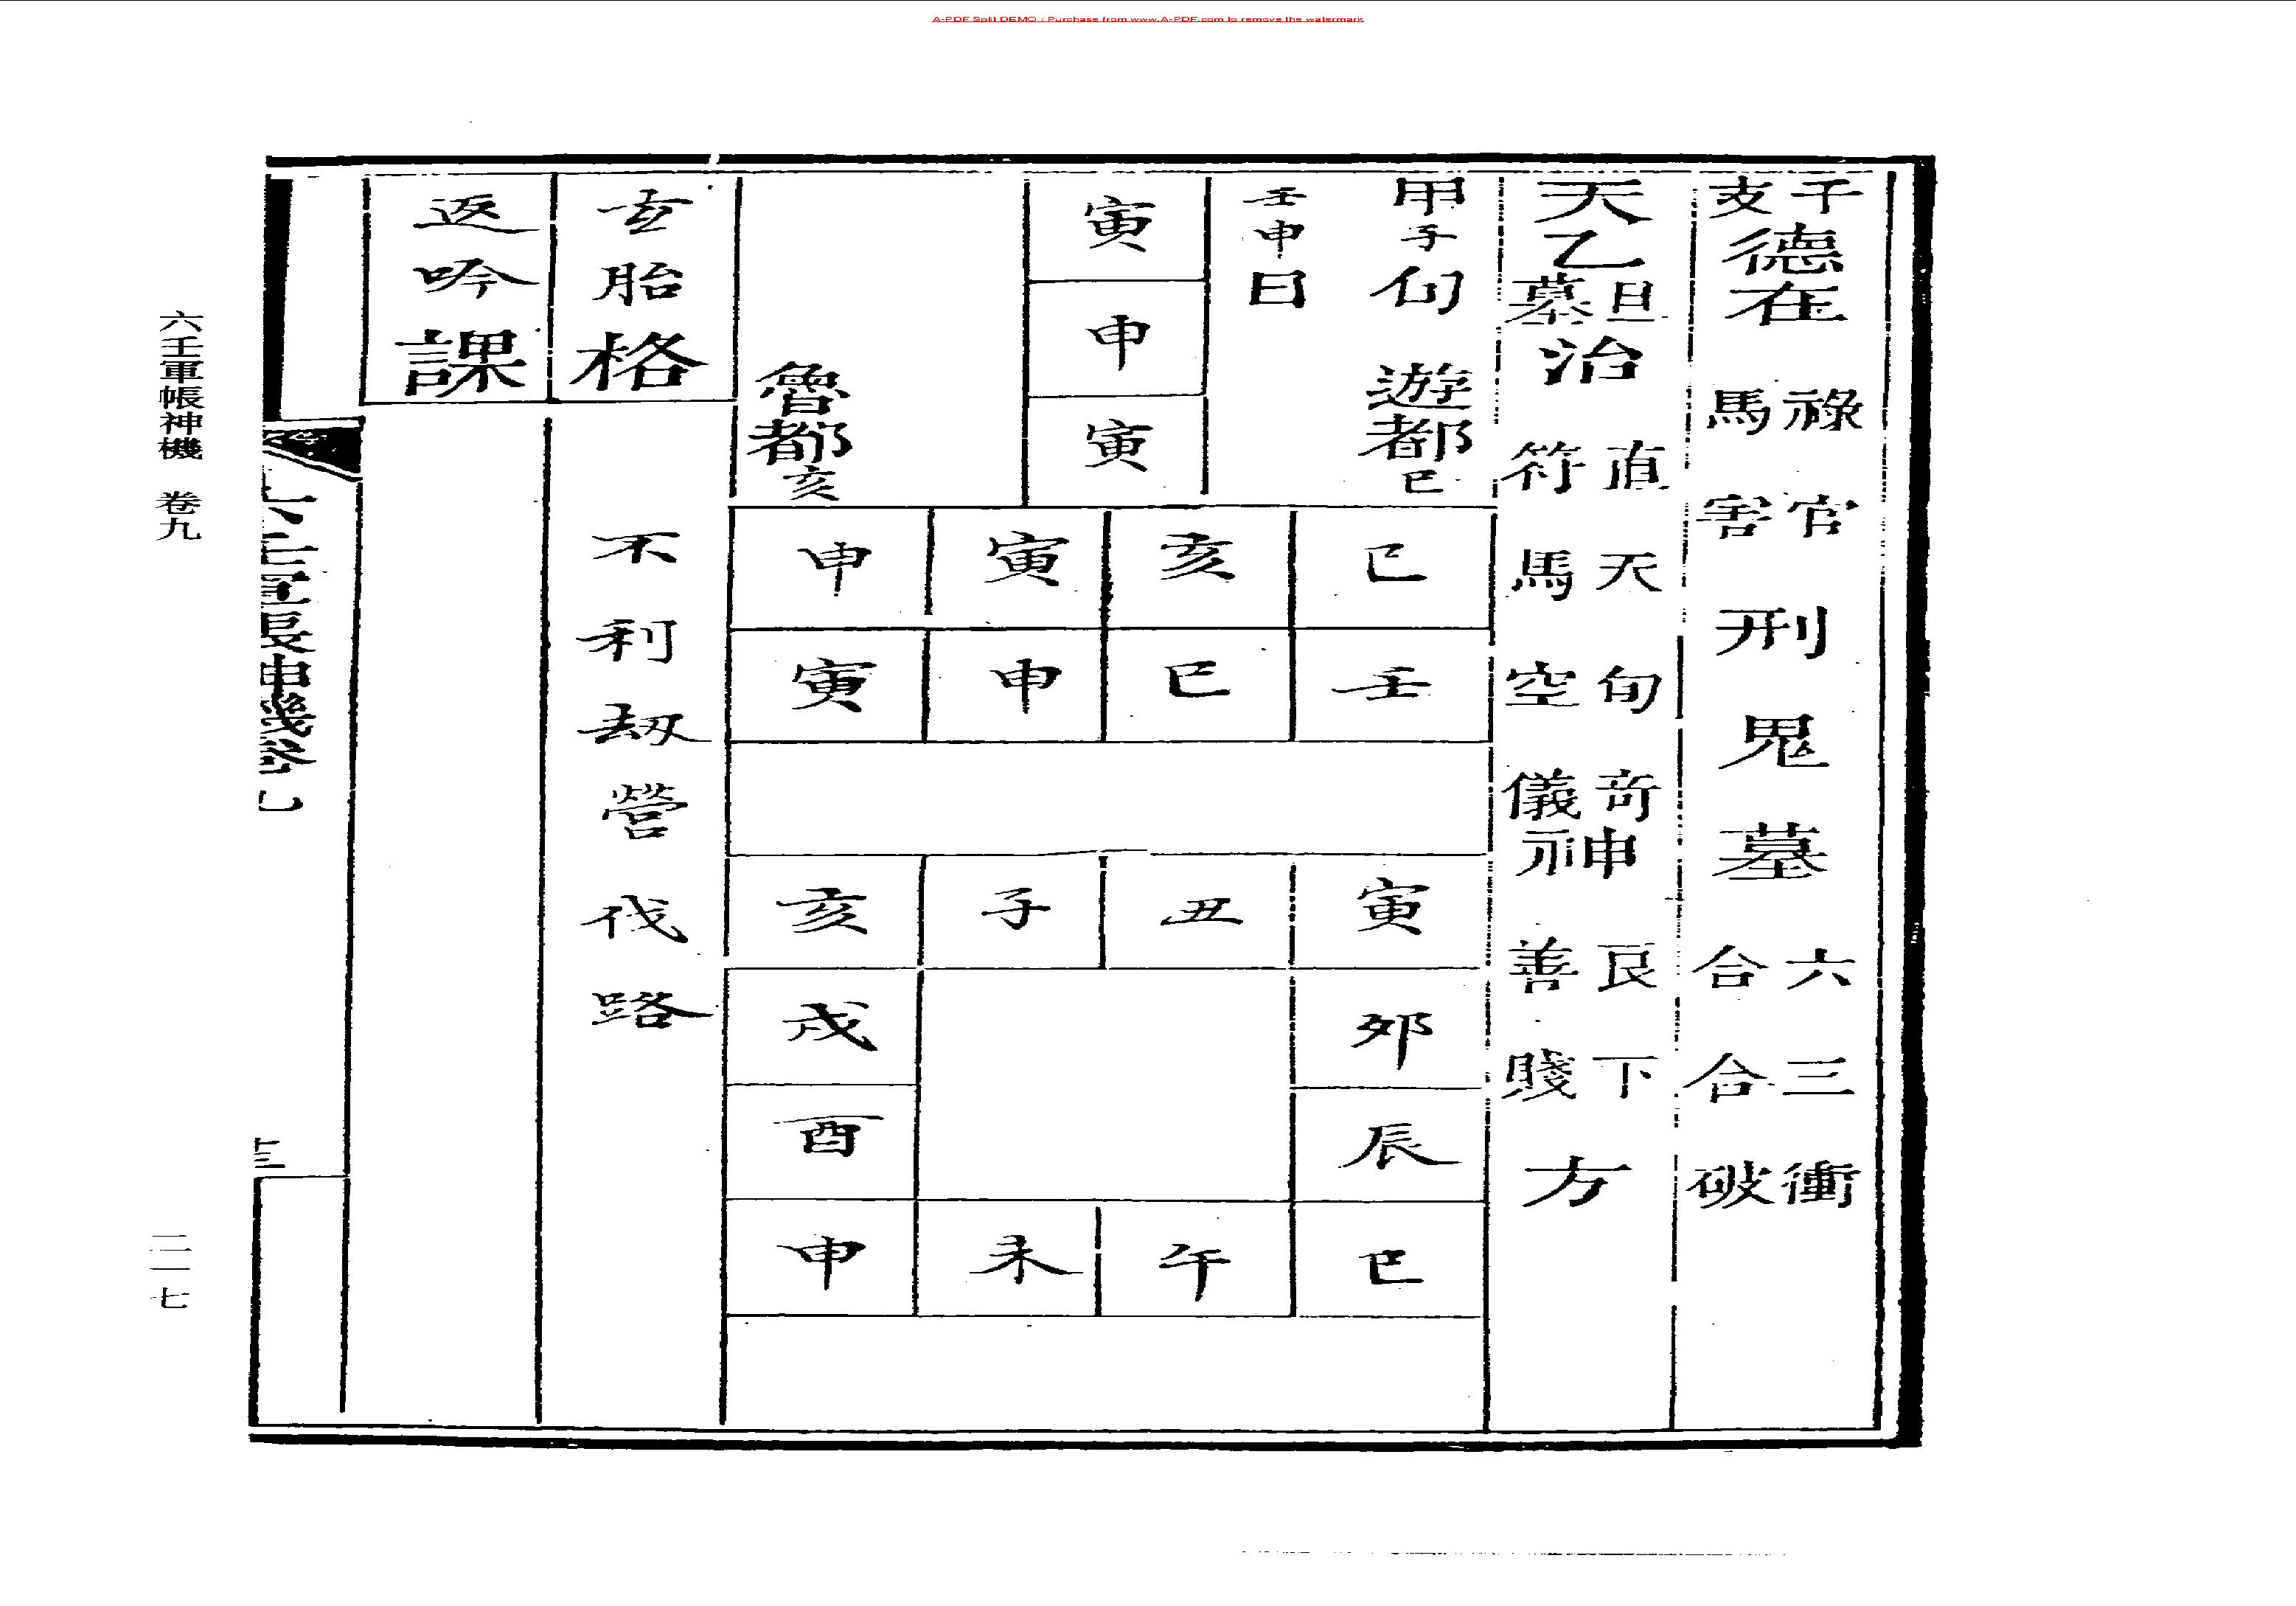 A-PDF Split DEMO : Purchase from www.A-PDF.com to remove the watermark
干支德在 祿馬 官害 刑 鬼 墓 六合 三合 衝破
天乙旦墓治 直符 天馬 旬空 奇儀神 良善 下賤 方
甲子旬 遊都巳
壬申日
寅
申
寅
魯都亥
巳 亥 寅 申
壬 巳 申 寅
寅 丑 子 亥
卯 戌
辰 酉
巳 午 未 申
玄胎格
不利劫營伐路
返吟課
十三
六壬軍帳神機 卷九
二一七